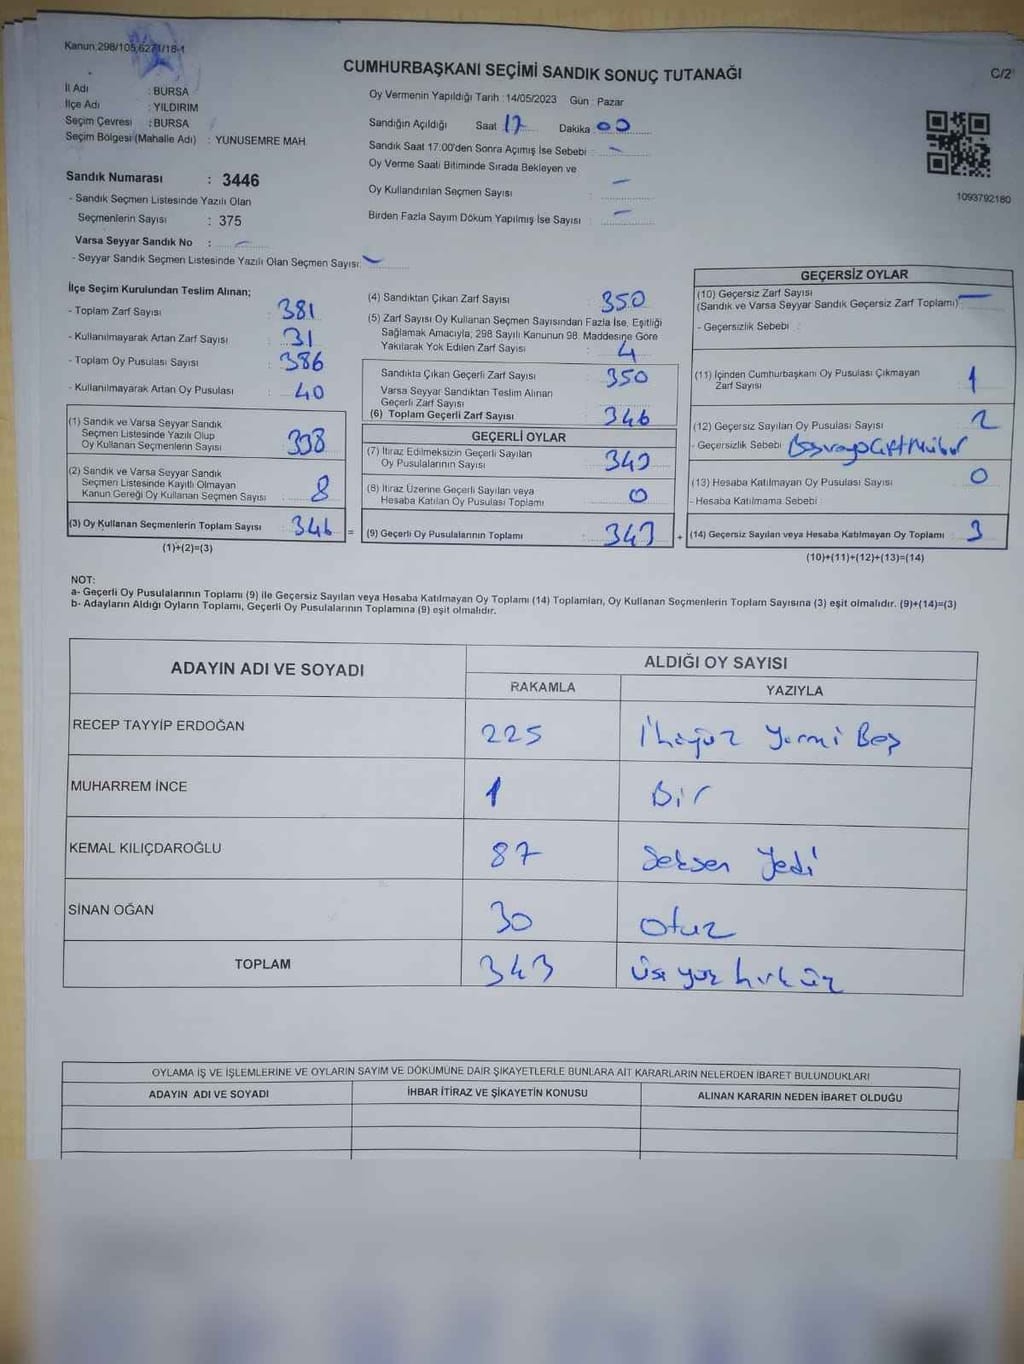 Kanun:298/105,6271/18-1
CUMHURBAŞKANI SEÇİMİ SANDIK SONUÇ TUTANAĞI
C/2
İl Adı : BURSA
İlçe Adı : YILDIRIM
Seçim Çevresi : BURSA
Seçim Bölgesi (Mahalle Adı) : YUNUSEMRE MAH
Oy Vermenin Yapıldığı Tarih : 14/05/2023 Gün : Pazar
Sandığın Açıldığı Saat 17 Dakika 00
Sandık Saat 17:00'den Sonra Açımış İse Sebebi : -
Oy Verme Saati Bitiminde Sırada Bekleyen ve
Oy Kullandırılan Seçmen Sayısı : -
Birden Fazla Sayım Döküm Yapılmış İse Sayısı : -
1093792180
Sandık Numarası : 3446
- Sandık Seçmen Listesinde Yazılı Olan
Seçmenlerin Sayısı : 375
Varsa Seyyar Sandık No : -
- Seyyar Sandık Seçmen Listesinde Yazılı Olan Seçmen Sayısı: -
İlçe Seçim Kurulundan Teslim Alınan;
- Toplam Zarf Sayısı : 381
- Kullanılmayarak Artan Zarf Sayısı : 31
- Toplam Oy Pusulası Sayısı : 386
- Kullanılmayarak Artan Oy Pusulası : 40
(1) Sandık ve Varsa Seyyar Sandık
Seçmen Listesinde Yazılı Olup
Oy Kullanan Seçmenlerin Sayısı : 338
(2) Sandık ve Varsa Seyyar Sandık
Seçmen Listesinde Kayıtlı Olmayan
Kanun Gereği Oy Kullanan Seçmen Sayısı : 8
(3) Oy Kullanan Seçmenlerin Toplam Sayısı : 346 =
(1)+(2)=(3)
(4) Sandıktan Çıkan Zarf Sayısı : 350
(5) Zarf Sayısı Oy Kullanan Seçmen Sayısından Fazla İse, Eşitliği
Sağlamak Amacıyla; 298 Sayılı Kanunun 98. Maddesine Göre
Yakılarak Yok Edilen Zarf Sayısı : 4
Sandıkta Çıkan Geçerli Zarf Sayısı : 350
Varsa Seyyar Sandıktan Teslim Alınan
Geçerli Zarf Sayısı :
(6) Toplam Geçerli Zarf Sayısı : 346
GEÇERLİ OYLAR
(7) İtiraz Edilmeksizin Geçerli Sayılan
Oy Pusulalarının Sayısı : 343
(8) İtiraz Üzerine Geçerli Sayılan veya
Hesaba Katılan Oy Pusulası Toplamı : 0
(9) Geçerli Oy Pusulalarının Toplamı : 343 +
GEÇERSİZ OYLAR
(10) Geçersiz Zarf Sayısı
(Sandık ve Varsa Seyyar Sandık Geçersiz Zarf Toplamı) : -
- Geçersizlik Sebebi :
(11) İçinden Cumhurbaşkanı Oy Pusulası Çıkmayan
Zarf Sayısı : 1
(12) Geçersiz Sayılan Oy Pusulası Sayısı : 2
- Geçersizlik Sebebi :
(13) Hesaba Katılmayan Oy Pusulası Sayısı : 0
- Hesaba Katılmama Sebebi :
(14) Geçersiz Sayılan veya Hesaba Katılmayan Oy Toplamı : 3
(10)+(11)+(12)+(13)=(14)
NOT:
a- Geçerli Oy Pusulalarının Toplamı (9) ile Geçersiz Sayılan veya Hesaba Katılmayan Oy Toplamı (14) Toplamları, Oy Kullanan Seçmenlerin Toplam Sayısına (3) eşit olmalıdır. (9)+(14)=(3)
b- Adayların Aldığı Oyların Toplamı, Geçerli Oy Pusulalarının Toplamına (9) eşit olmalıdır.
ADAYIN ADI VE SOYADI
ALDIĞI OY SAYISI
RAKAMLA YAZIYLA
RECEP TAYYİP ERDOĞAN 225 İkiyüz Yirmi Beş
MUHARREM İNCE 1 Bir
KEMAL KILIÇDAROĞLU 87 Seksen Yedi
SİNAN OĞAN 30 Otuz
TOPLAM 343 Üçyüz kırküç
OYLAMA İŞ VE İŞLEMLERİNE VE OYLARIN SAYIM VE DÖKÜMÜNE DAİR ŞİKAYETLERLE BUNLARA AİT KARARLARIN NELERDEN İBARET BULUNDUKLARI
ADAYIN ADI VE SOYADI İHBAR İTİRAZ VE ŞİKAYETİN KONUSU ALINAN KARARIN NEDEN İBARET OLDUĞU